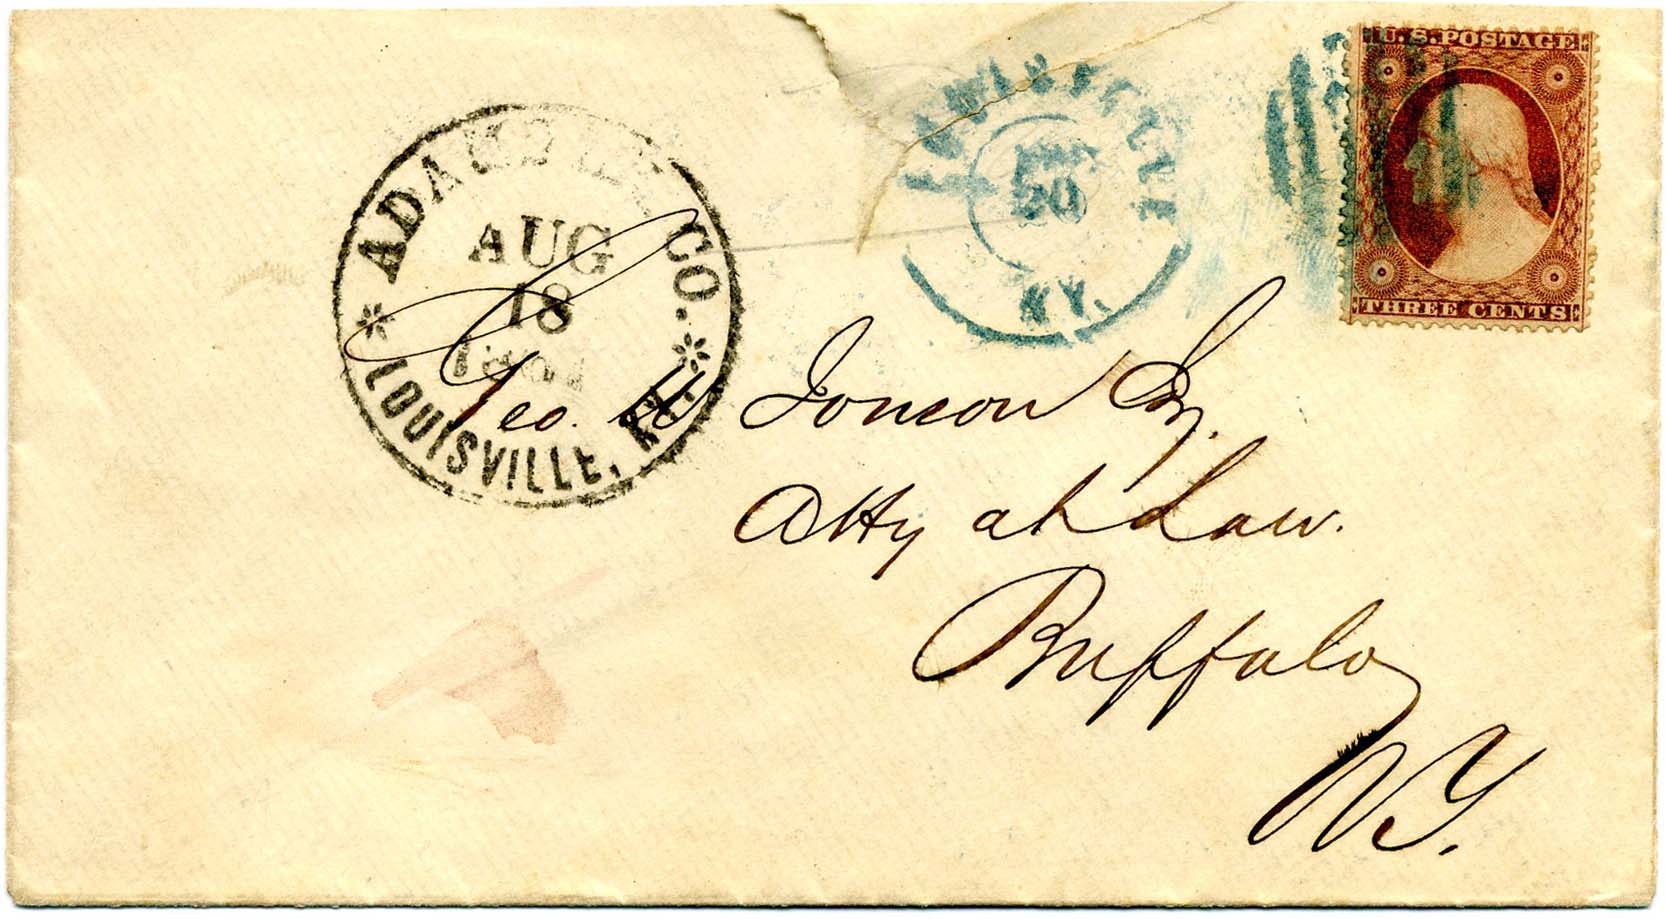 ADA CO.
AUG
18
LOUISVILLE, KY.
LOUISVILLE
20
KY.
U.S. POSTAGE
THREE CENTS
Geo. H
Atty at Law.
Buffalo
N.Y.